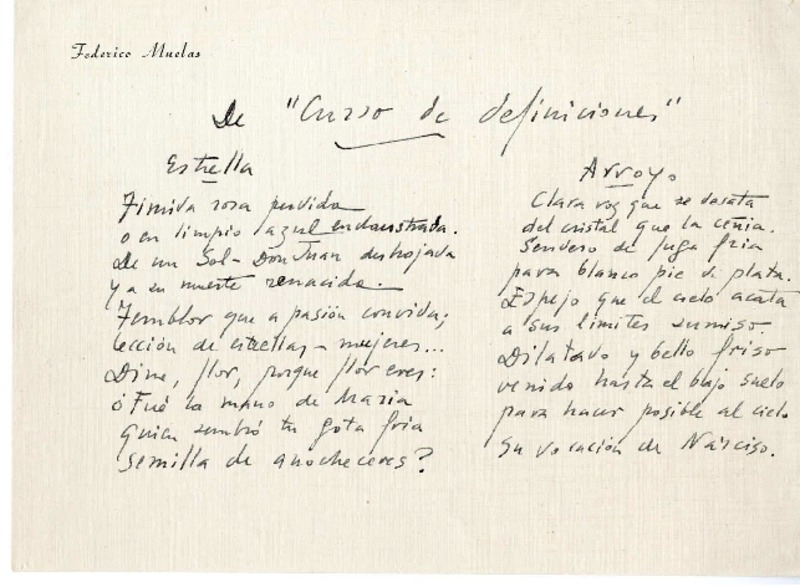 Federico Muelas
De "Curso de definiciones"
Estrella
Tímida rosa perdida
o en limpio azul enclaustrada.
De un Sol-Don Juan deshojada
y a su muerte renacida.
Temblor que a pasión convida;
lección de estrellas-mujeres...
Dime, flor, porque flor eres:
¿Fué la mano de María
quien sembró tu gota fría
semilla de anocheceres?
Arroyo
Clara voz que se desata
del cristal que la ceñía.
Sendero de fuga fría
para blanco pie de plata.
Espejo que el cielo acata
a sus límites sumiso.
Dilatado y bello friso
venido hasta el bajo suelo
para hacer posible al cielo
su vocación de Narciso.